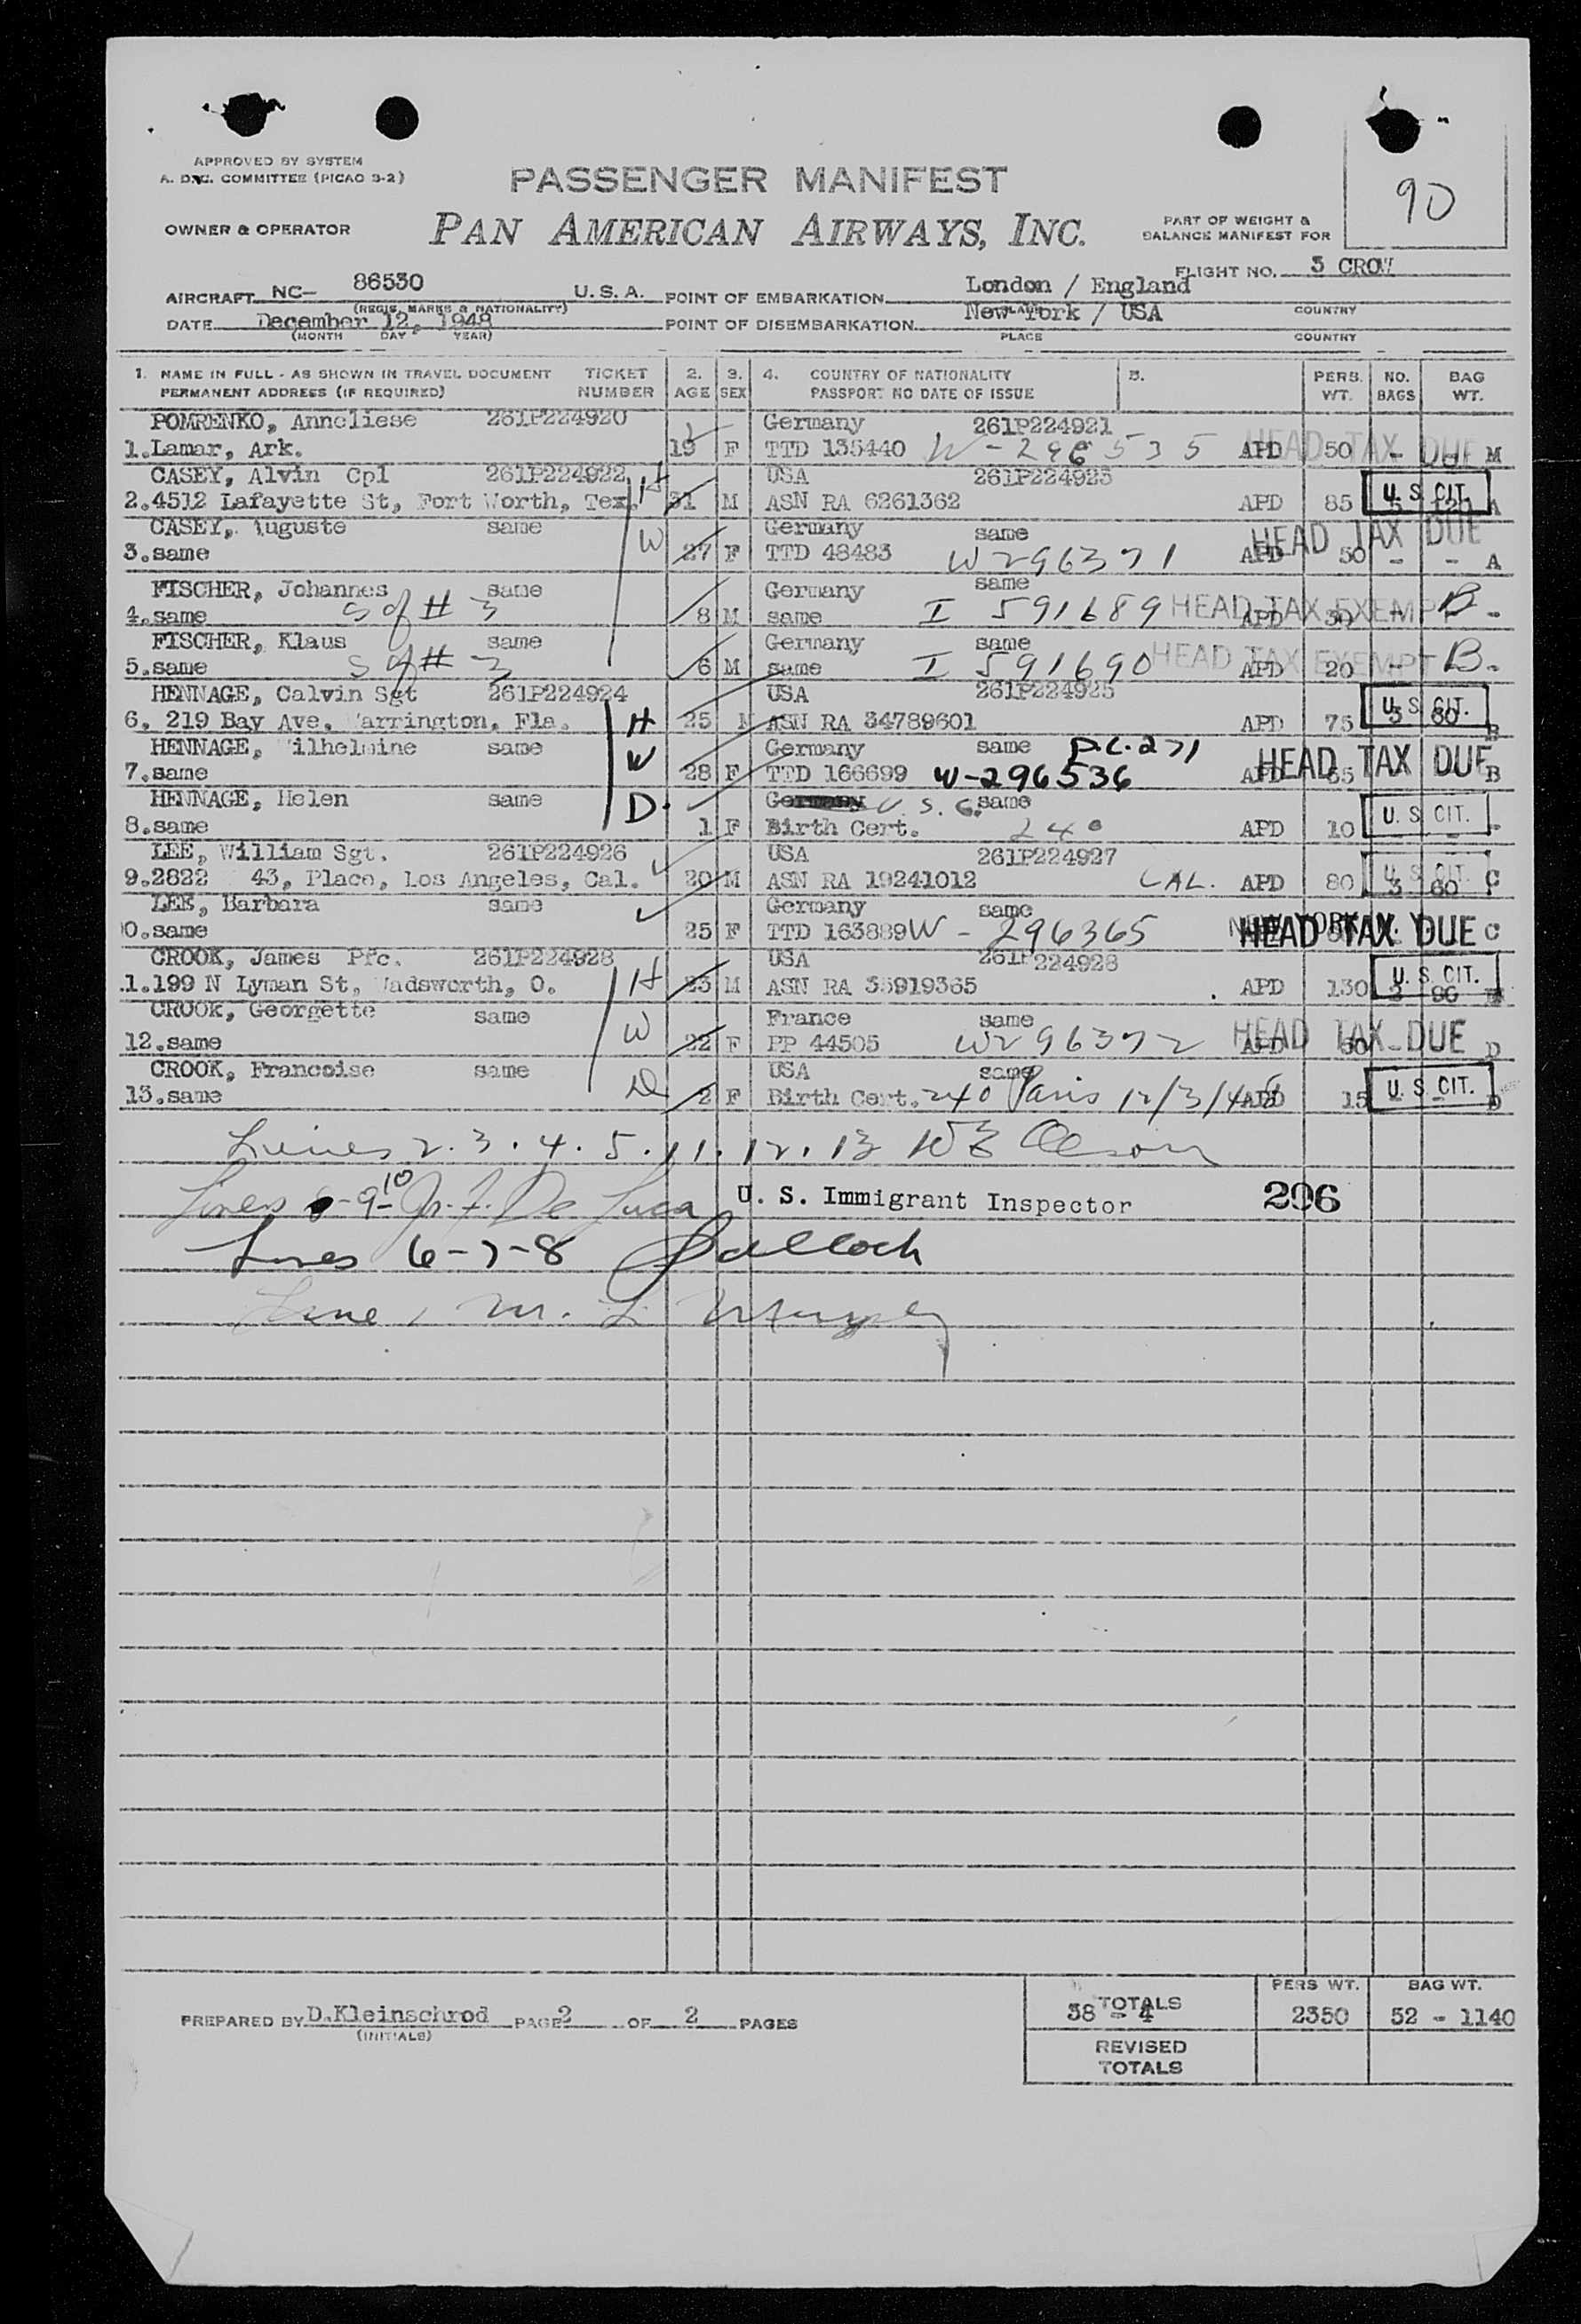 90
APPROVED BY SYSTEM
A. D. C. COMMITTEE (PICAO 3-2)
PASSENGER MANIFEST
OWNER & OPERATOR PAN AMERICAN AIRWAYS, INC.
PART OF WEIGHT &
BALANCE MANIFEST FOR
FLIGHT NO. 3 CROW
AIRCRAFT NC- 86530 U. S. A. POINT OF EMBARKATION London / England
(REGIS. MARKS & NATIONALITY) PLACE COUNTRY
DATE December 12, 1948 POINT OF DISEMBARKATION New York / USA
(MONTH DAY YEAR) PLACE COUNTRY
1. NAME IN FULL - AS SHOWN IN TRAVEL DOCUMENT TICKET 2. 3. 4. COUNTRY OF NATIONALITY 5. PERS. NO. BAG
PERMANENT ADDRESS (IF REQUIRED) NUMBER AGE SEX PASSPORT NO DATE OF ISSUE WT. BAGS WT.
POMRENKO, Anneliese 261P224920 Germany 261P224921
1. Lamar, Ark. 19 F TTD 135440 W-296535 APD HEAD TAX DUE 50 - - M
CASEY, Alvin Cpl 261P224922 H USA 261P224923
2. 4512 Lafayette St, Fort Worth, Tex. 31 M ASN RA 6261362 APD 85 U. S. CIT. A
CASEY, Auguste same W Germany same
3. same 27 F TTD 48483 W296371 APD HEAD TAX DUE 50 - - A
FISCHER, Johannes same Germany same
4. same S of # 3 8 M same I 591689 APD HEAD TAX EXEMPT 30 - B -
FISCHER, Klaus same Germany same
5. same S of # 3 6 M same I 591690 APD HEAD TAX EXEMPT 20 - B.
HENNAGE, Calvin Sgt 261P224924 USA 261P224925
6. 219 Bay Ave. Warrington, Fla. H 25 M ASN RA 34789601 APD 75 U. S. CIT. 3 60 B
HENNAGE, Wilhelmine same W Germany same P.C.271
7. same 28 F TTD 166699 W-296536 APD HEAD TAX DUE B
HENNAGE, Helen same D. Germany U.S.C. same
8. same 1 F Birth Cert. 240 APD 10 U. S. CIT. -
LEE, William Sgt. 261P224926 USA 261P224927
9. 2822 43, Place, Los Angeles, Cal. 20 M ASN RA 19241012 CAL. APD 80 U. S. CIT. 3 60 C
LEE, Barbara same Germany same
0. same 25 F TTD 163889 W-296365 NEW YORK N.Y. HEAD TAX DUE C
CROOK, James Pfc. 261P224928 USA 261P224928
.1. 199 N Lyman St, Wadsworth, O. H 23 M ASN RA 35919365 APD 130 U. S. CIT.
CROOK, Georgette same France same
12. same W 22 F PP 44505 W296372 APD HEAD TAX DUE D
CROOK, Francoise same USA same
13. same D 2 F Birth Cert. 240 Paris 12/3/48 APD 15 U. S. CIT. D
Lines 2. 3. 4. 5. 11. 12. 13
Lines 9-10 De Luca U. S. Immigrant Inspector 296
Lines 6-7-8
Line 1 M. L.
PREPARED BY D.Kleinschrod PAGE 2 OF 2 PAGES
(INITIALS)
TOTALS 38 - 4 PERS WT. 2350 BAG WT. 52 - 1140
REVISED
TOTALS